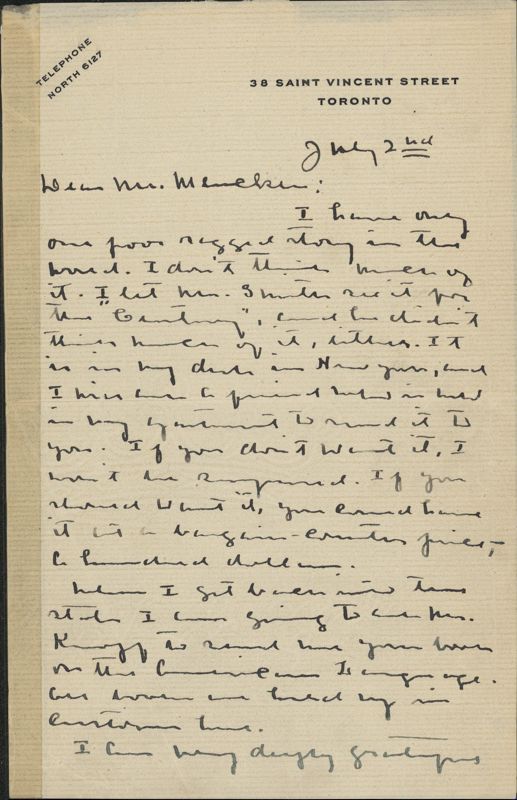 TELEPHONE
NORTH 6127
38 SAINT VINCENT STREET
TORONTO
July 2nd
Dear Mr. Mencken:
I have only
one poor ragged story in the
world. I don't think much of
it. I let Mr. Smith see it for
the "Century", and he didn't
think much of it, either. It
is in my desk in New York, and
I will ask a friend who is now
in my apartment to send it to
you. If you don't want it, I
won't be surprised. If you
should want it, you could have
it at a bargain-counter price,-
a hundred dollars.
When I get back into the
states I am going to ask Mr.
Knopf to send me your book
on the American Language.
All books are held up in
customs here.
I am very deeply grateful